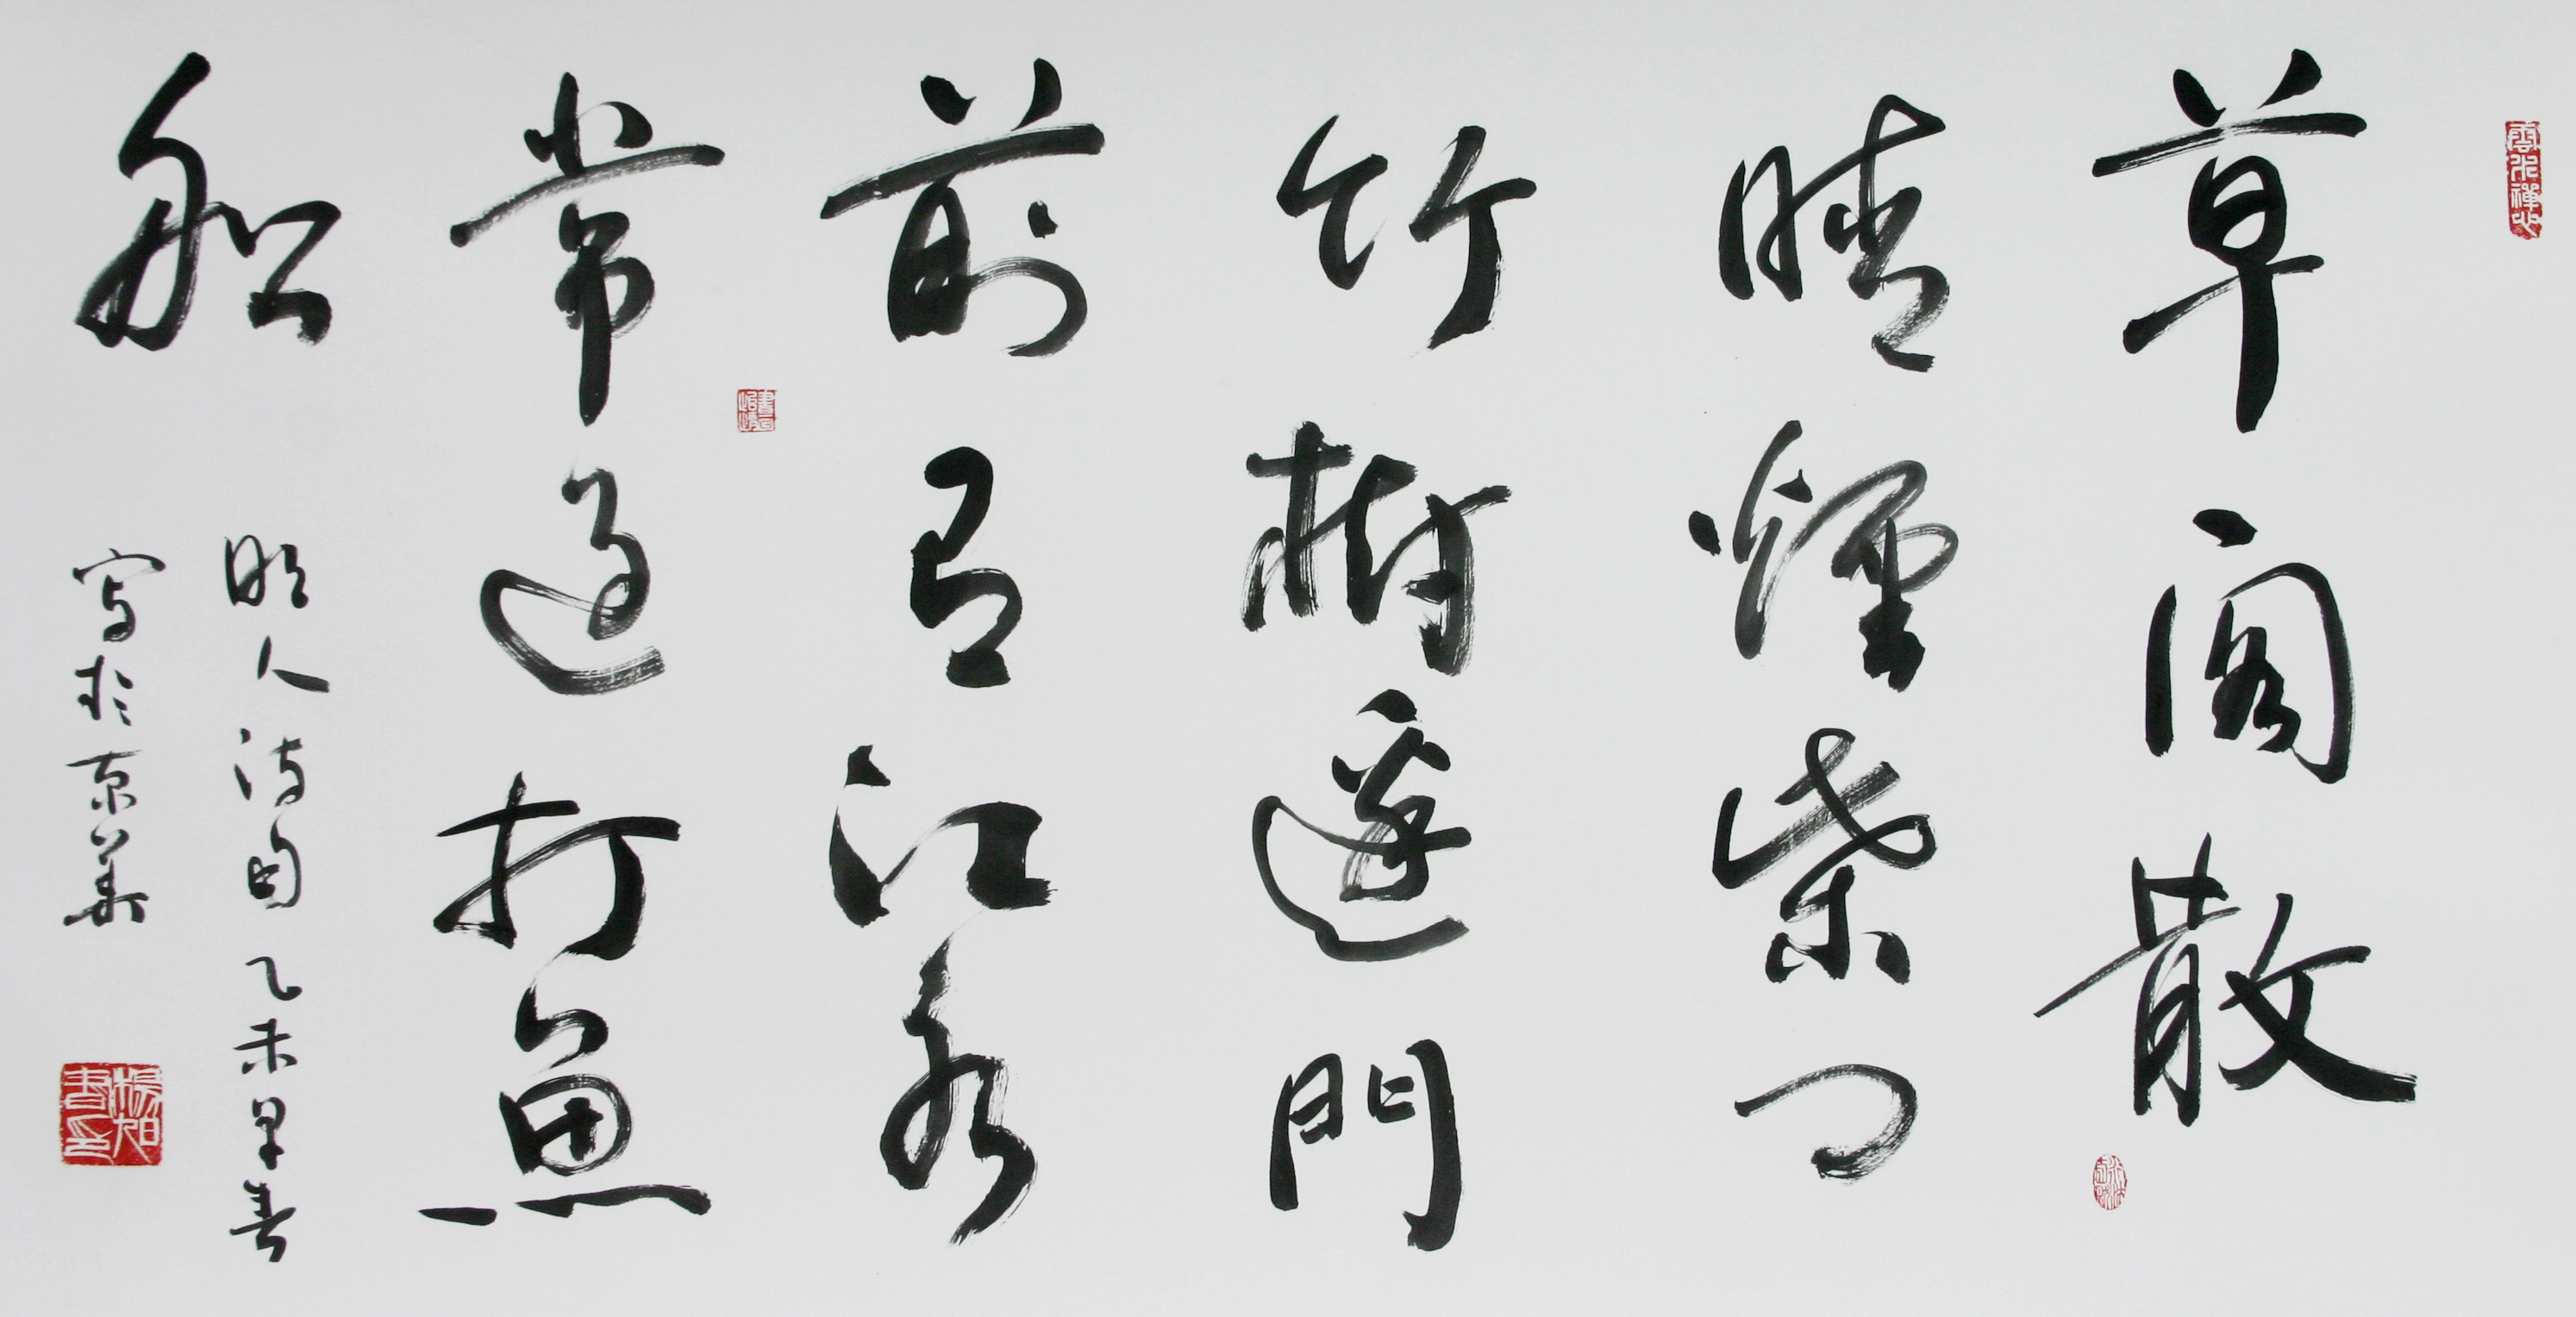 草阁散
晴煙柴門
竹樹邊門
前有江水
常過打魚
船
明人诗句 乙未早春
寫於京華